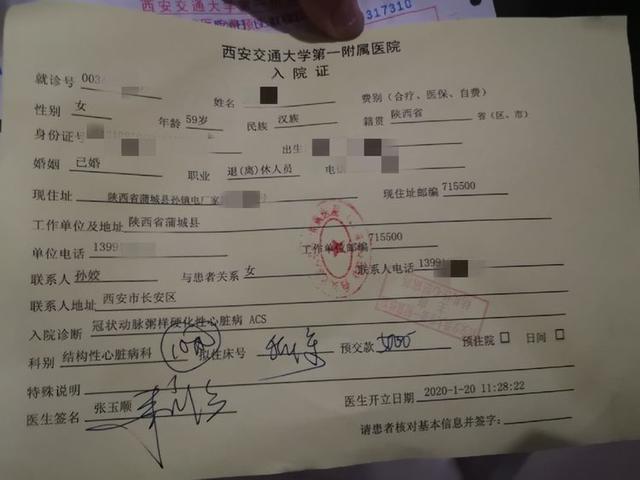 317310
西安交通大学第一附属医院
入 院 证
就诊号 003 姓名 费别（合疗、医保、自费）
性别 女 年龄 59岁 民族 汉族 籍贯 陕西省 省（区、市）
身份证号 出生
婚姻 已婚 职业 退(离)休人员 电话
现住址 陕西省蒲城县孙镇电厂家 现住址邮编 715500
工作单位及地址 陕西省蒲城县
单位电话 1399 工作单位邮编 715500
联系人 孙姣 与患者关系 女 联系人电话 1399
联系人地址 西安市长安区
入院诊断 冠状动脉粥样硬化性心脏病 ACS
科别 结构性心脏病科 拟住床号 预交款 预住院 □ 日间 □
特殊说明
医生签名 张玉顺 医生开立日期 2020-1-20 11:28:22
请患者核对基本信息并签字：